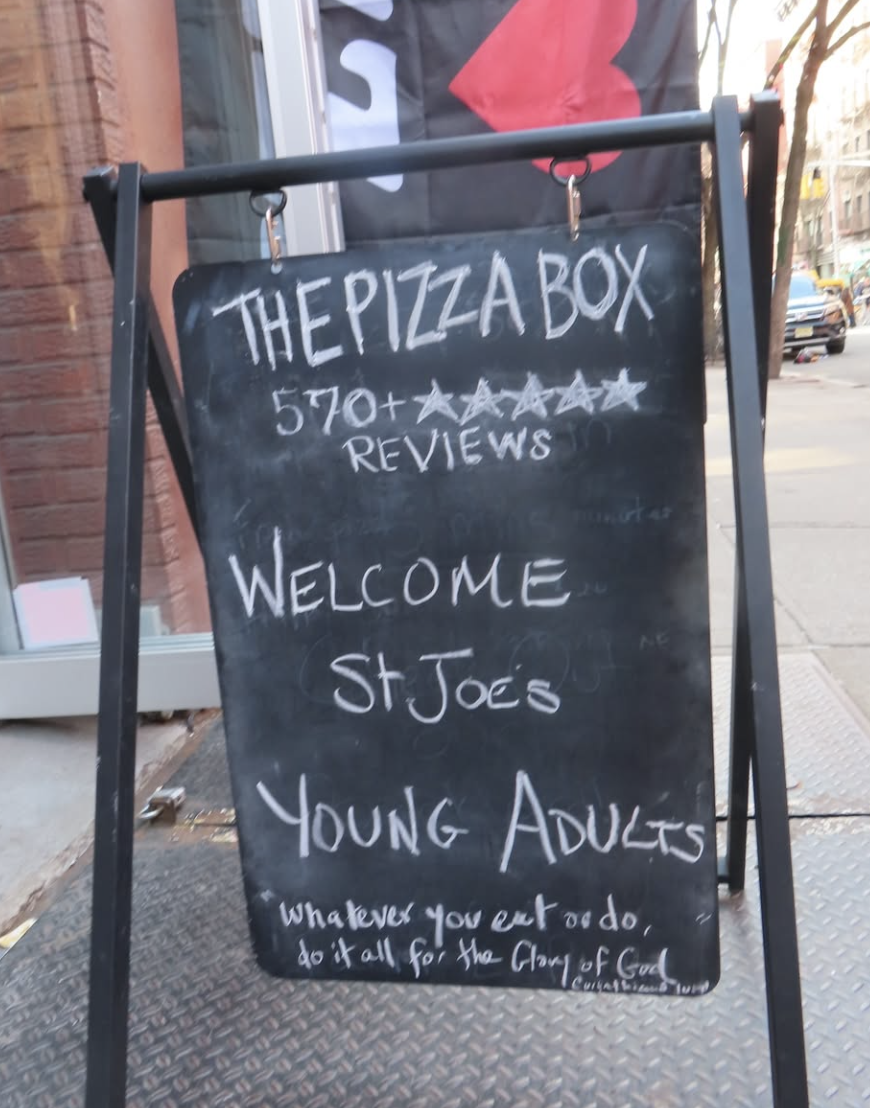 THE PIZZA BOX
570+ ★★★★★
REVIEWS
WELCOME
St JOE'S
YOUNG ADULTS
"Whatever you eat or do,
do it all for the Glory of God"
Corinthians